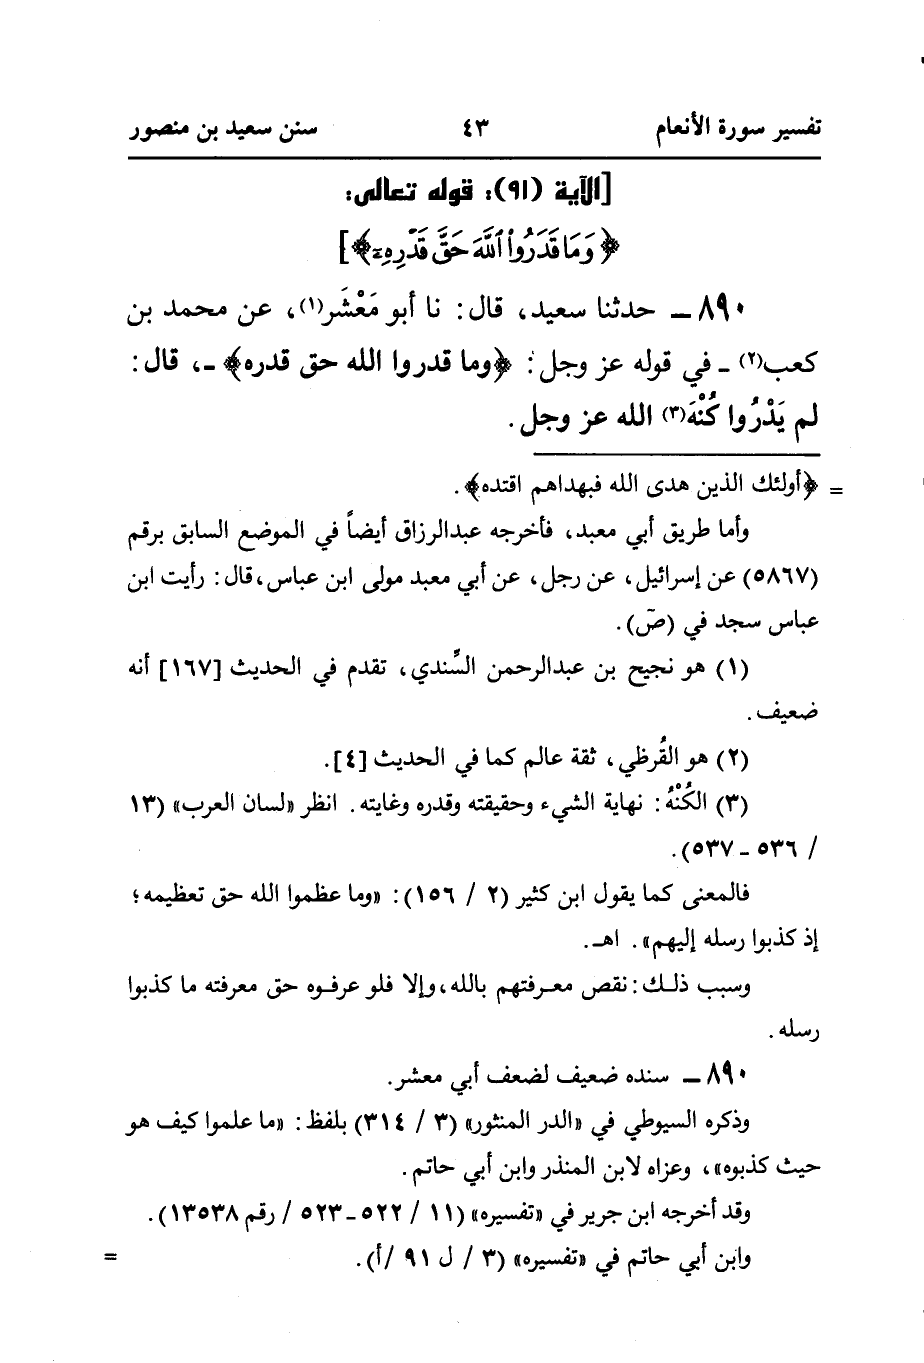 تفسير سورة الأنعام ٤٣ سنن سعيد بن منصور
[الآية (٩١): قوله تعالى:
﴿وَمَا قَدَرُوا۟ ٱللَّهَ حَقَّ قَدْرِهِۦٓ﴾]
٨٩٠ ـ حدثنا سعيد، قال: نا أبو مَعْشَر(١)، عن محمد بن
كعب(٢) ـ في قوله عز وجل: ﴿وما قدروا الله حق قدره﴾ ـ، قال:
لم يَدْرُوا كُنْهَ(٣) الله عز وجل.
= ﴿أولئك الذين هدى الله فبهداهم اقتده﴾.
وأما طريق أبي معبد، فأخرجه عبدالرزاق أيضاً في الموضع السابق برقم
(٥٨٦٧) عن إسرائيل، عن رجل، عن أبي معبد مولى ابن عباس، قال: رأيت ابن
عباس سجد في (صٓ).
(١) هو نجيح بن عبدالرحمن السِّندي، تقدم في الحديث [١٦٧] أنه
ضعيف.
(٢) هو القُرظي، ثقة عالم كما في الحديث [٤].
(٣) الكُنْهُ: نهاية الشيء وحقيقته وقدره وغايته. انظر «لسان العرب» (١٣
/ ٥٣٦ ـ ٥٣٧).
فالمعنى كما يقول ابن كثير (٢ / ١٥٦): «وما عظموا الله حق تعظيمه؛
إذ كذبوا رسله إليهم». اهـ.
وسبب ذلك: نقص معرفتهم بالله، وإلا فلو عرفوه حق معرفته ما كذبوا
رسله.
٨٩٠ ـ سنده ضعيف لضعف أبي معشر.
وذكره السيوطي في «الدر المنثور» (٣ / ٣١٤) بلفظ: «ما علموا كيف هو
حيث كذبوه»، وعزاه لابن المنذر وابن أبي حاتم.
وقد أخرجه ابن جرير في «تفسيره» (١١ / ٥٢٢ ـ ٥٢٣ / رقم ١٣٥٣٨).
وابن أبي حاتم في «تفسيره» (٣ / ل ٩١ /أ). =